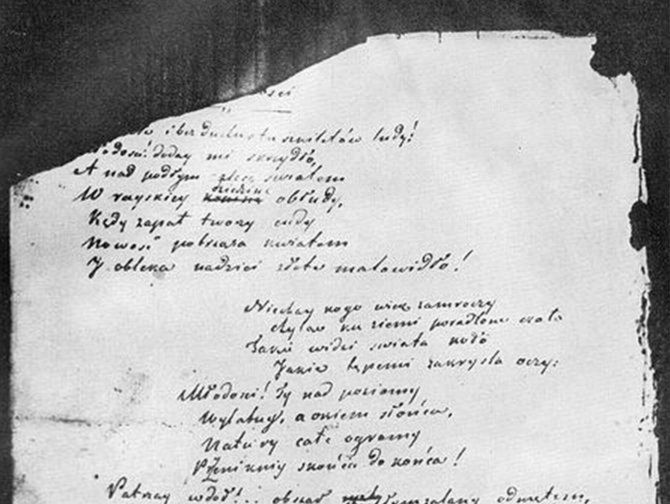 ości
i bez ducha to szkieletów ludy!
łodości! doday mi skrzydło,
A nad podłym zlecę światem
W rayskiey dziedzinę obłudy,
Kędy zapał tworzy cudy
Nowość potrząsa kwiatem
I obleka nadziei złote malowidło!
Niechay kogo wiek zamroczy
Chyląc ku ziemi poradlone czoło
Takie widzi świata koło
Jakie tępemi zakryśla oczy:
Młodości! Ty nad poziomy
Wylatuy, a okiem słońca,
Natury całe ogromy
Przeniknij z końca do końca!
Patrzay w dół!.. obszar zalany odmętem,